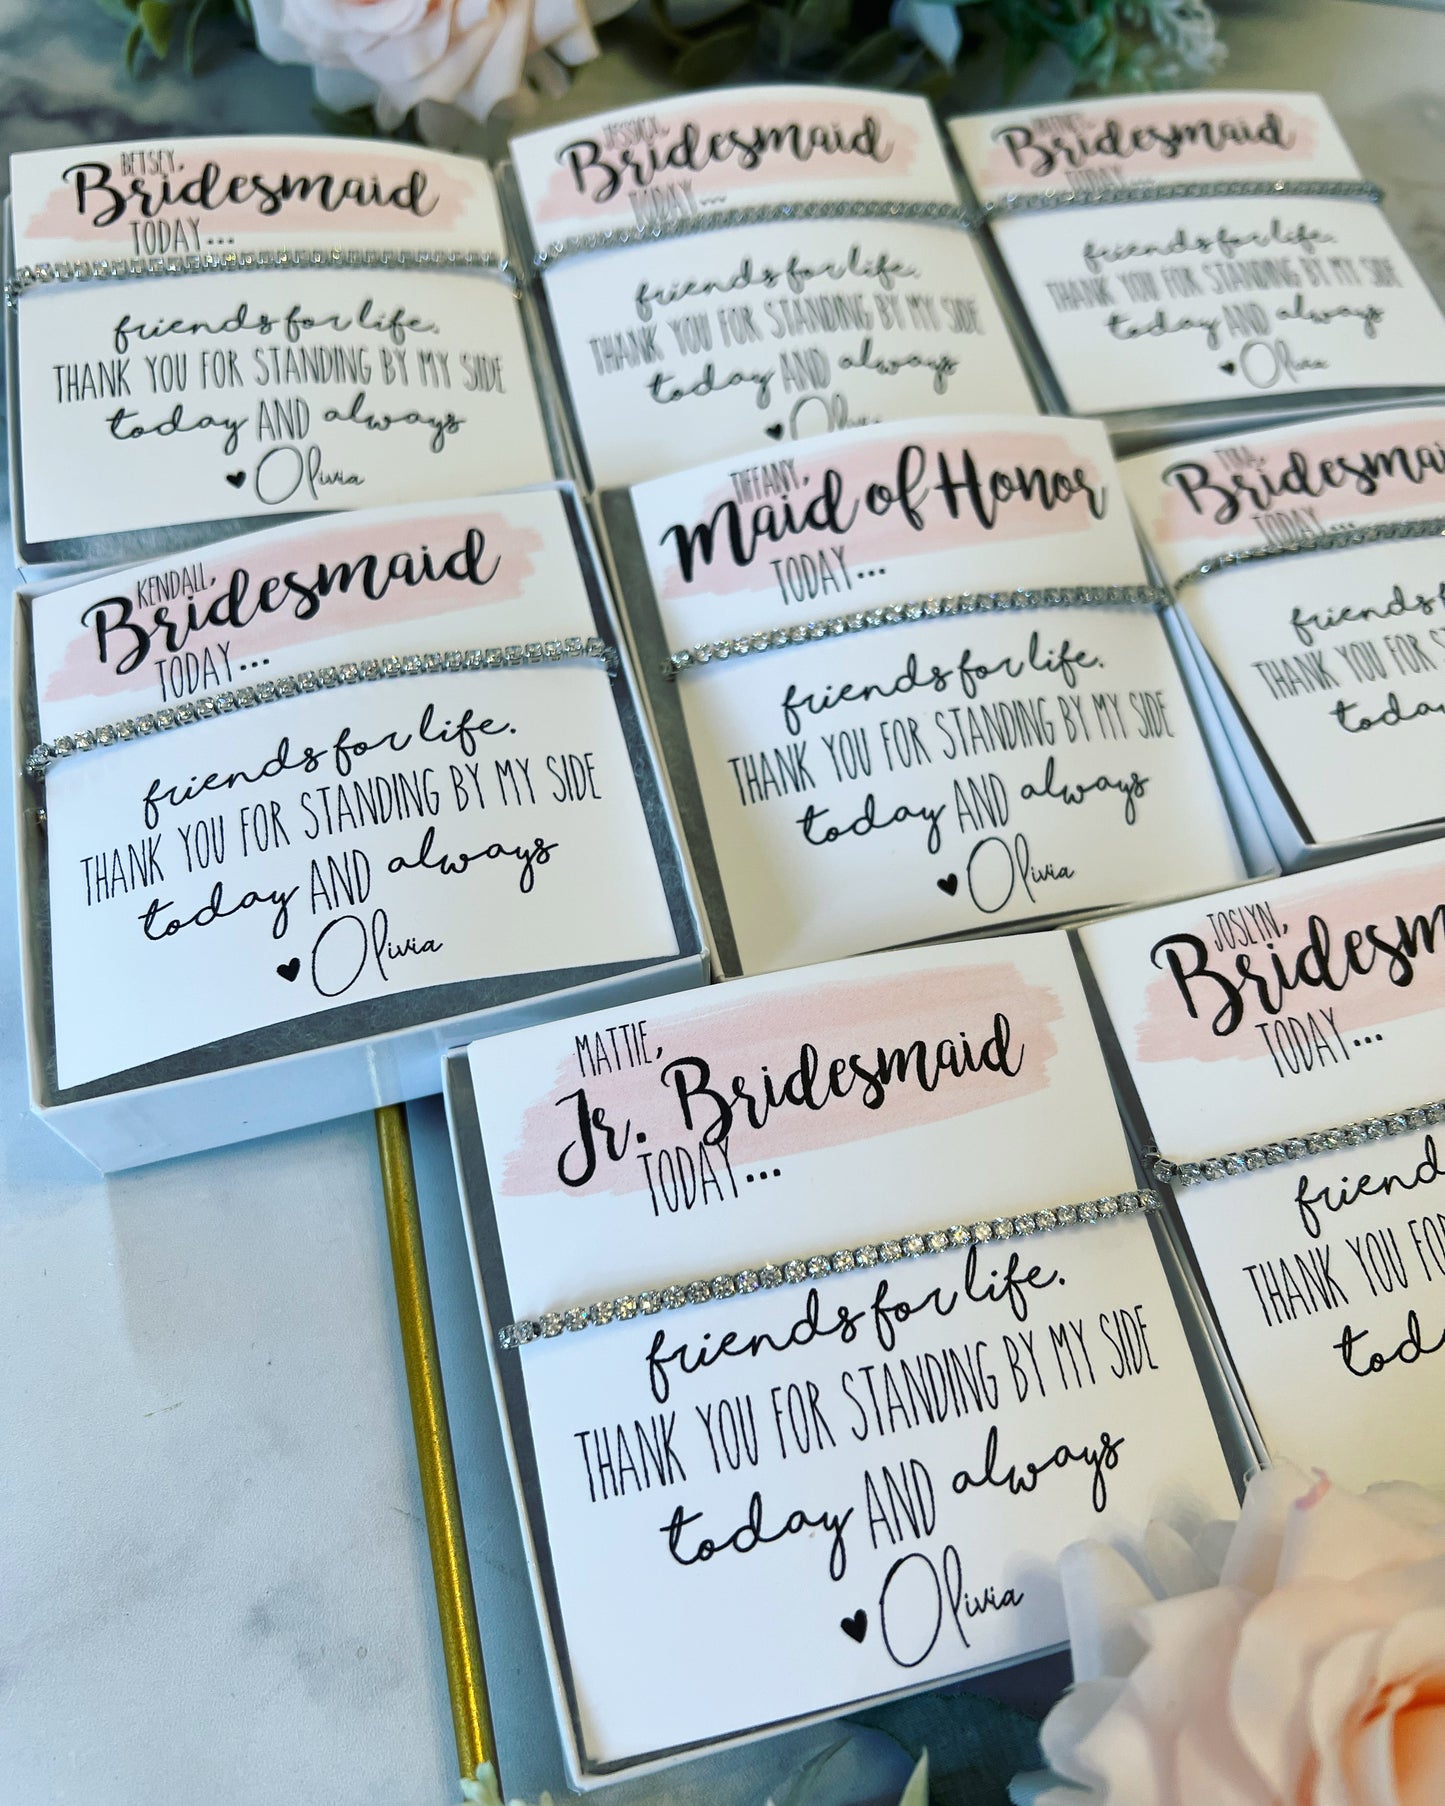 BETSEY,
Bridesmaid
TODAY...
friends for life.
THANK YOU FOR STANDING BY MY SIDE
today AND always
♥ Olivia
JESSICA,
Bridesmaid
TODAY...
friends for life.
THANK YOU FOR STANDING BY MY SIDE
today AND always
♥ Olivia
Bridesmaid
TODAY...
friends for life.
THANK YOU FOR STANDING BY MY SIDE
today AND always
♥ Olivia
KENDALL,
Bridesmaid
TODAY...
friends for life.
THANK YOU FOR STANDING BY MY SIDE
today AND always
♥ Olivia
TIFFANY,
Maid of Honor
TODAY...
friends for life.
THANK YOU FOR STANDING BY MY SIDE
today AND always
♥ Olivia
TINA,
Bridesmai
TODAY...
friends f
THANK YOU FOR S
toda
MATTIE,
Jr. Bridesmaid
TODAY...
friends for life.
THANK YOU FOR STANDING BY MY SIDE
today AND always
♥ Olivia
JOSLYN,
Bridesm
TODAY...
friend
THANK YOU FO
tod